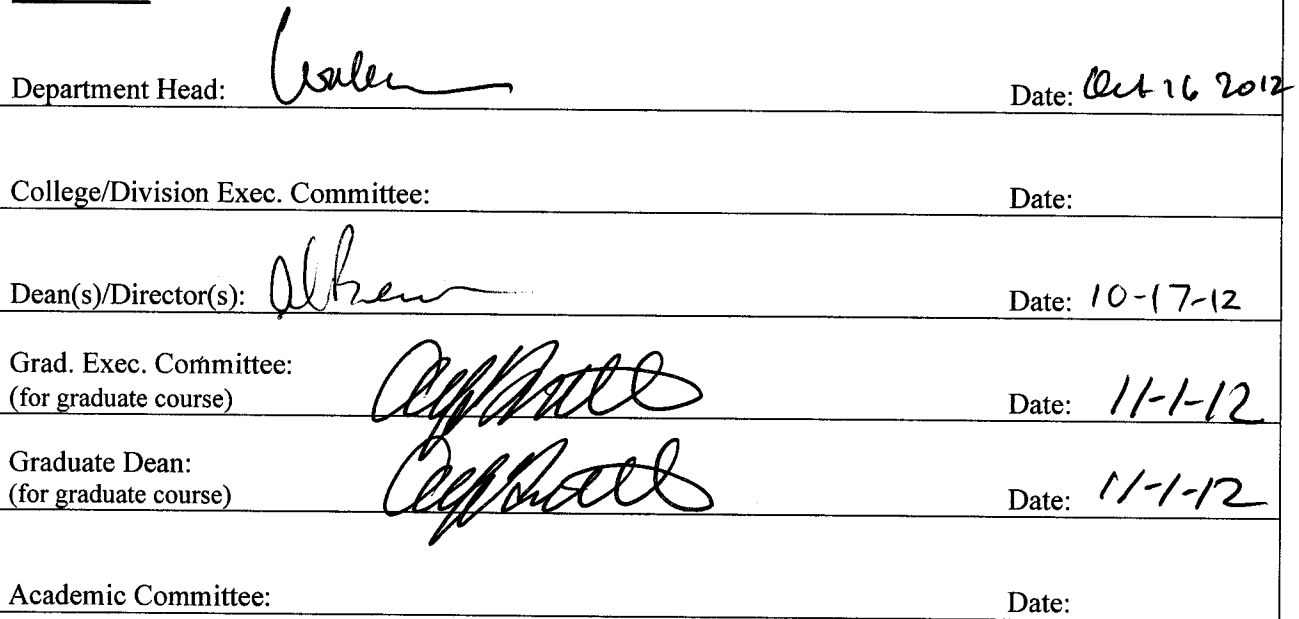 Department Head: Date: Oct 16 2012
College/Division Exec. Committee: Date:
Dean(s)/Director(s): Date: 10-17-12
Grad. Exec. Committee:
(for graduate course) Date: 11-1-12
Graduate Dean:
(for graduate course) Date: 11-1-12
Academic Committee: Date: